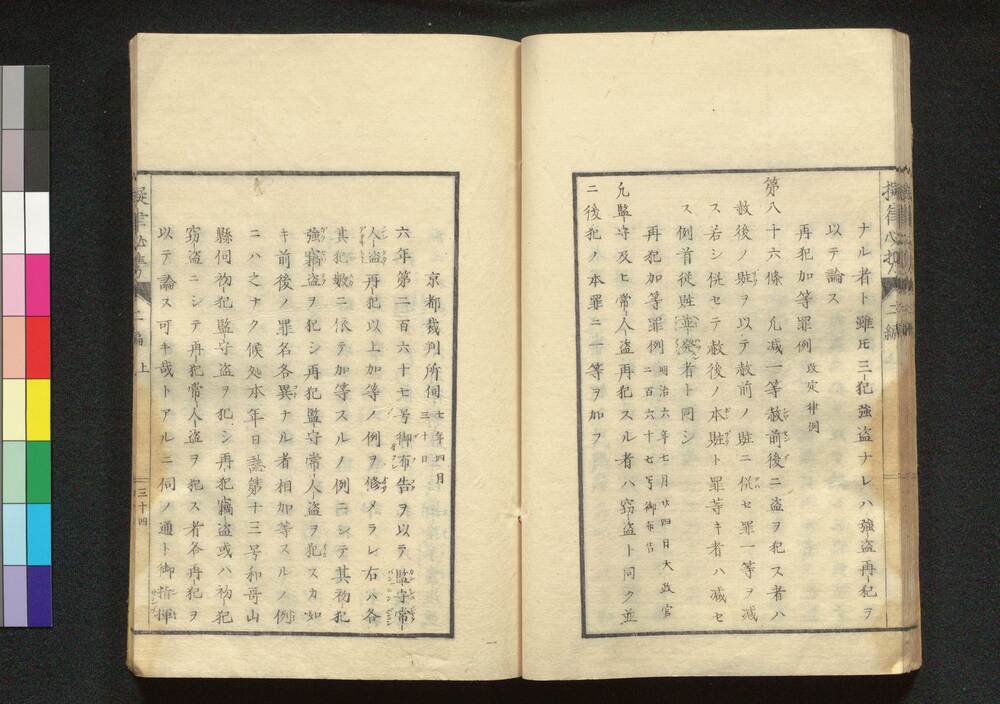 ナル者ト雖𪜈三犯強盗ナレハ強盗再犯ヲ
以テ論ス
再犯加等罪例 改定律例
第八十六條 凡减一等赦前後ニ盗ヲ犯ス者ハ
赦後ノ賍ヲ以テ赦前ノ賍ニ併セ罪一等ヲ减
ス若シ併セテ赦後ノ本賍ト罪等キ者ハ减セ
ス例首従賍並発者ト同シ
再犯加等罪例 明治六年七月廿四日大政官
二百六十七号御布告
凡監守及ヒ常人盗再犯スル者ハ窃盗ト同ク並
ニ後犯ノ本罪ニ一等ヲ加フ
京都裁判所伺 七年四月
三十日
六年第二百六十七号御布告ヲ以テ監守常
人盗再犯以上加等ノ例ヲ修メラレ右ハ各
其犯数ニ依テ加等スルノ例ニシテ其初犯
強竊盗ヲ犯シ再犯監守常人盗ヲ犯スカ如
キ前後ノ罪名各異ナル者相加等スルノ例
ニハ之ナク候処本年日誌第十三号和哥山
縣伺初犯監守盗ヲ犯シ再犯竊盗或ハ初犯
窃盗ニシテ再犯常人盗ヲ犯ス者各再犯ヲ
以テ論ス可キ哉トアルニ伺ノ通ト御指揮
二編 上
三十四